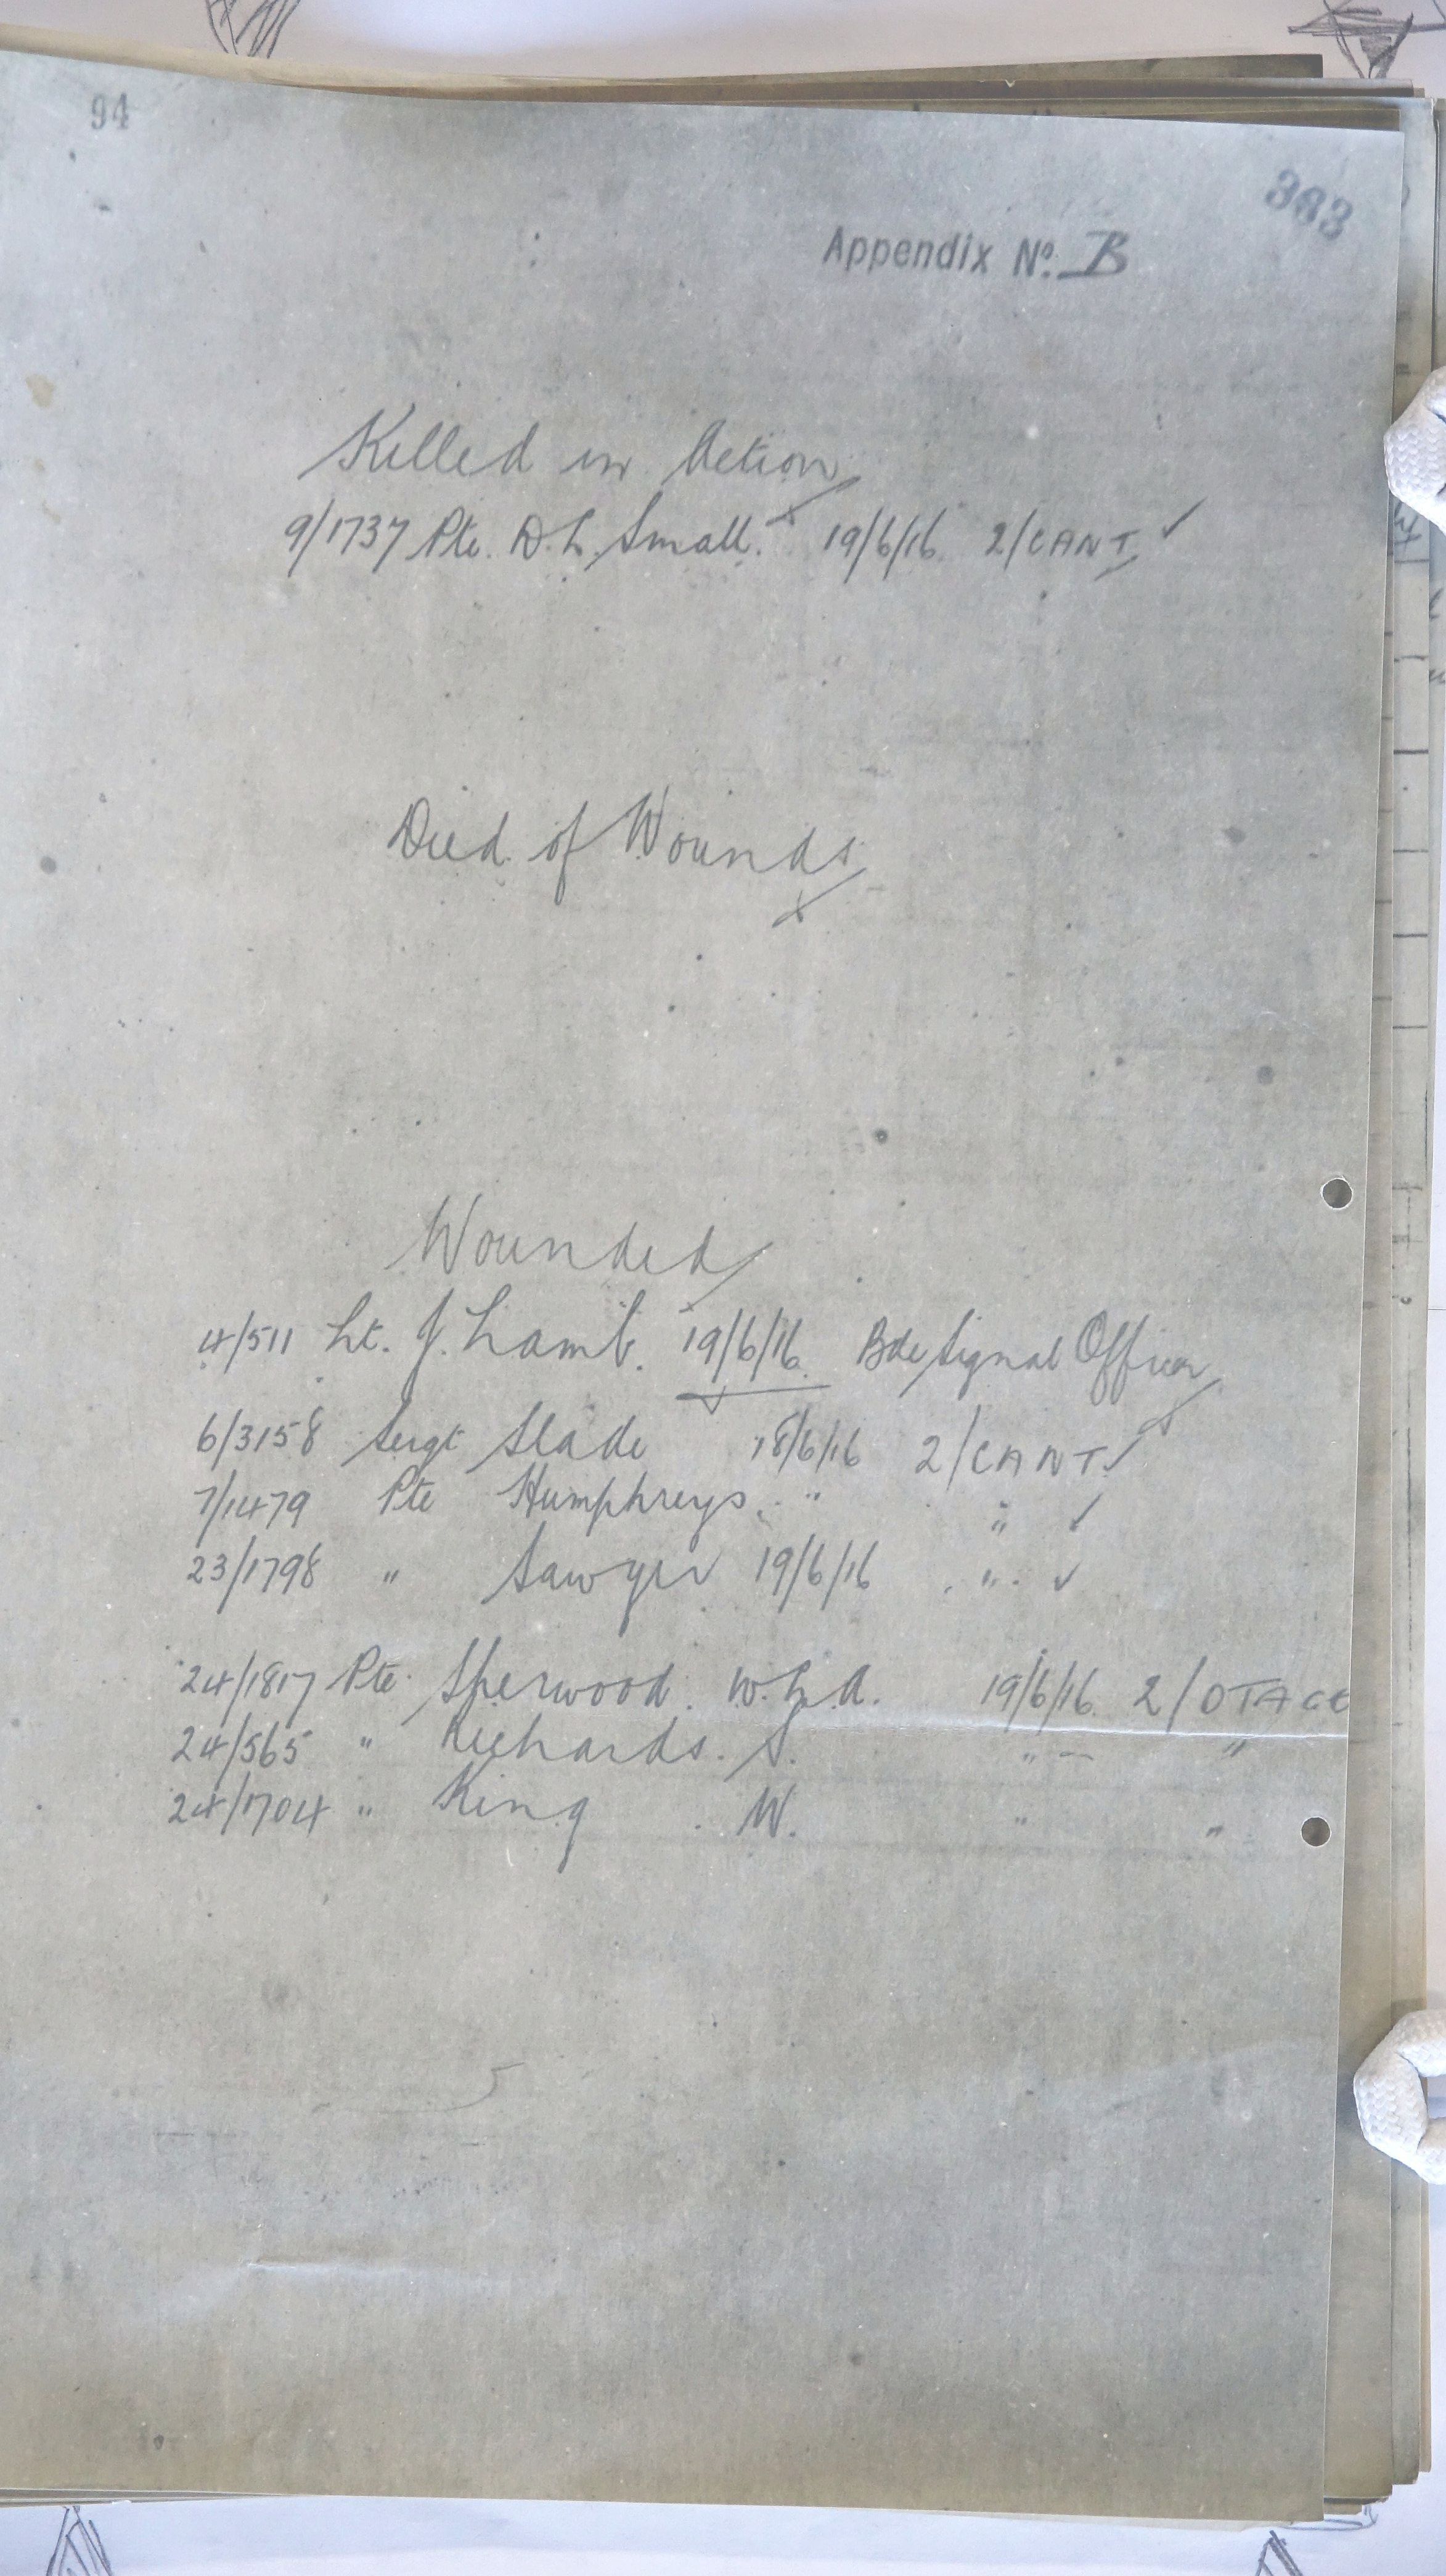 94
363
Appendix No. B
Killed in Action
9/1737 Pte. D.L. Small. 19/6/16 2/CANT. ✓
Died of Wounds
Wounded
4/511 Lt. J. Lamb. 19/6/16. Bde Signal Officer
6/3158 Sergt Slade 18/6/16 2/CANT. ✓
7/1479 Pte Humphreys. " " ✓
23/1798 " Sawyer 19/6/16 " ✓
24/1817 Pte. Sherwood. W.L.A. 19/6/16. 2/OTAGO
24/565 " Richards. S. " — "
24/1704 " King . W. " "